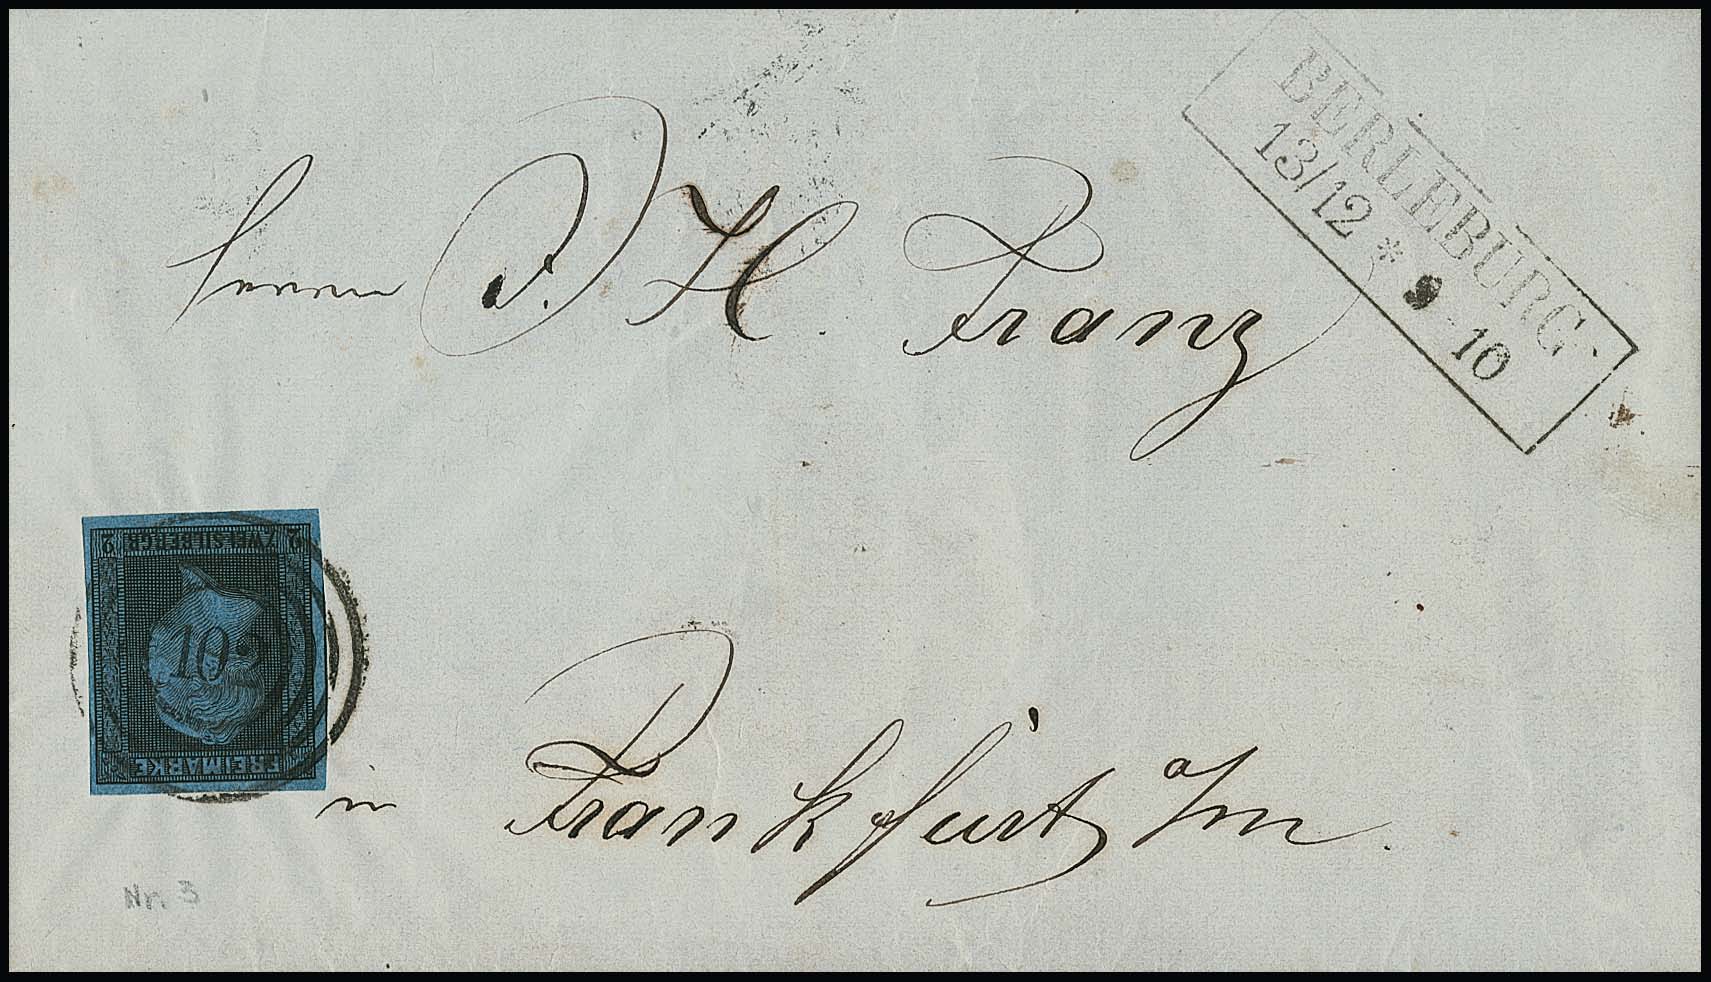 BERLEBURG
13/12 * 9-10
Herrn J. H. Franz
ZWEI SILBERGR.
2 2
10
FREIMARKE
in Frankfurt a/m.
Nr. 3